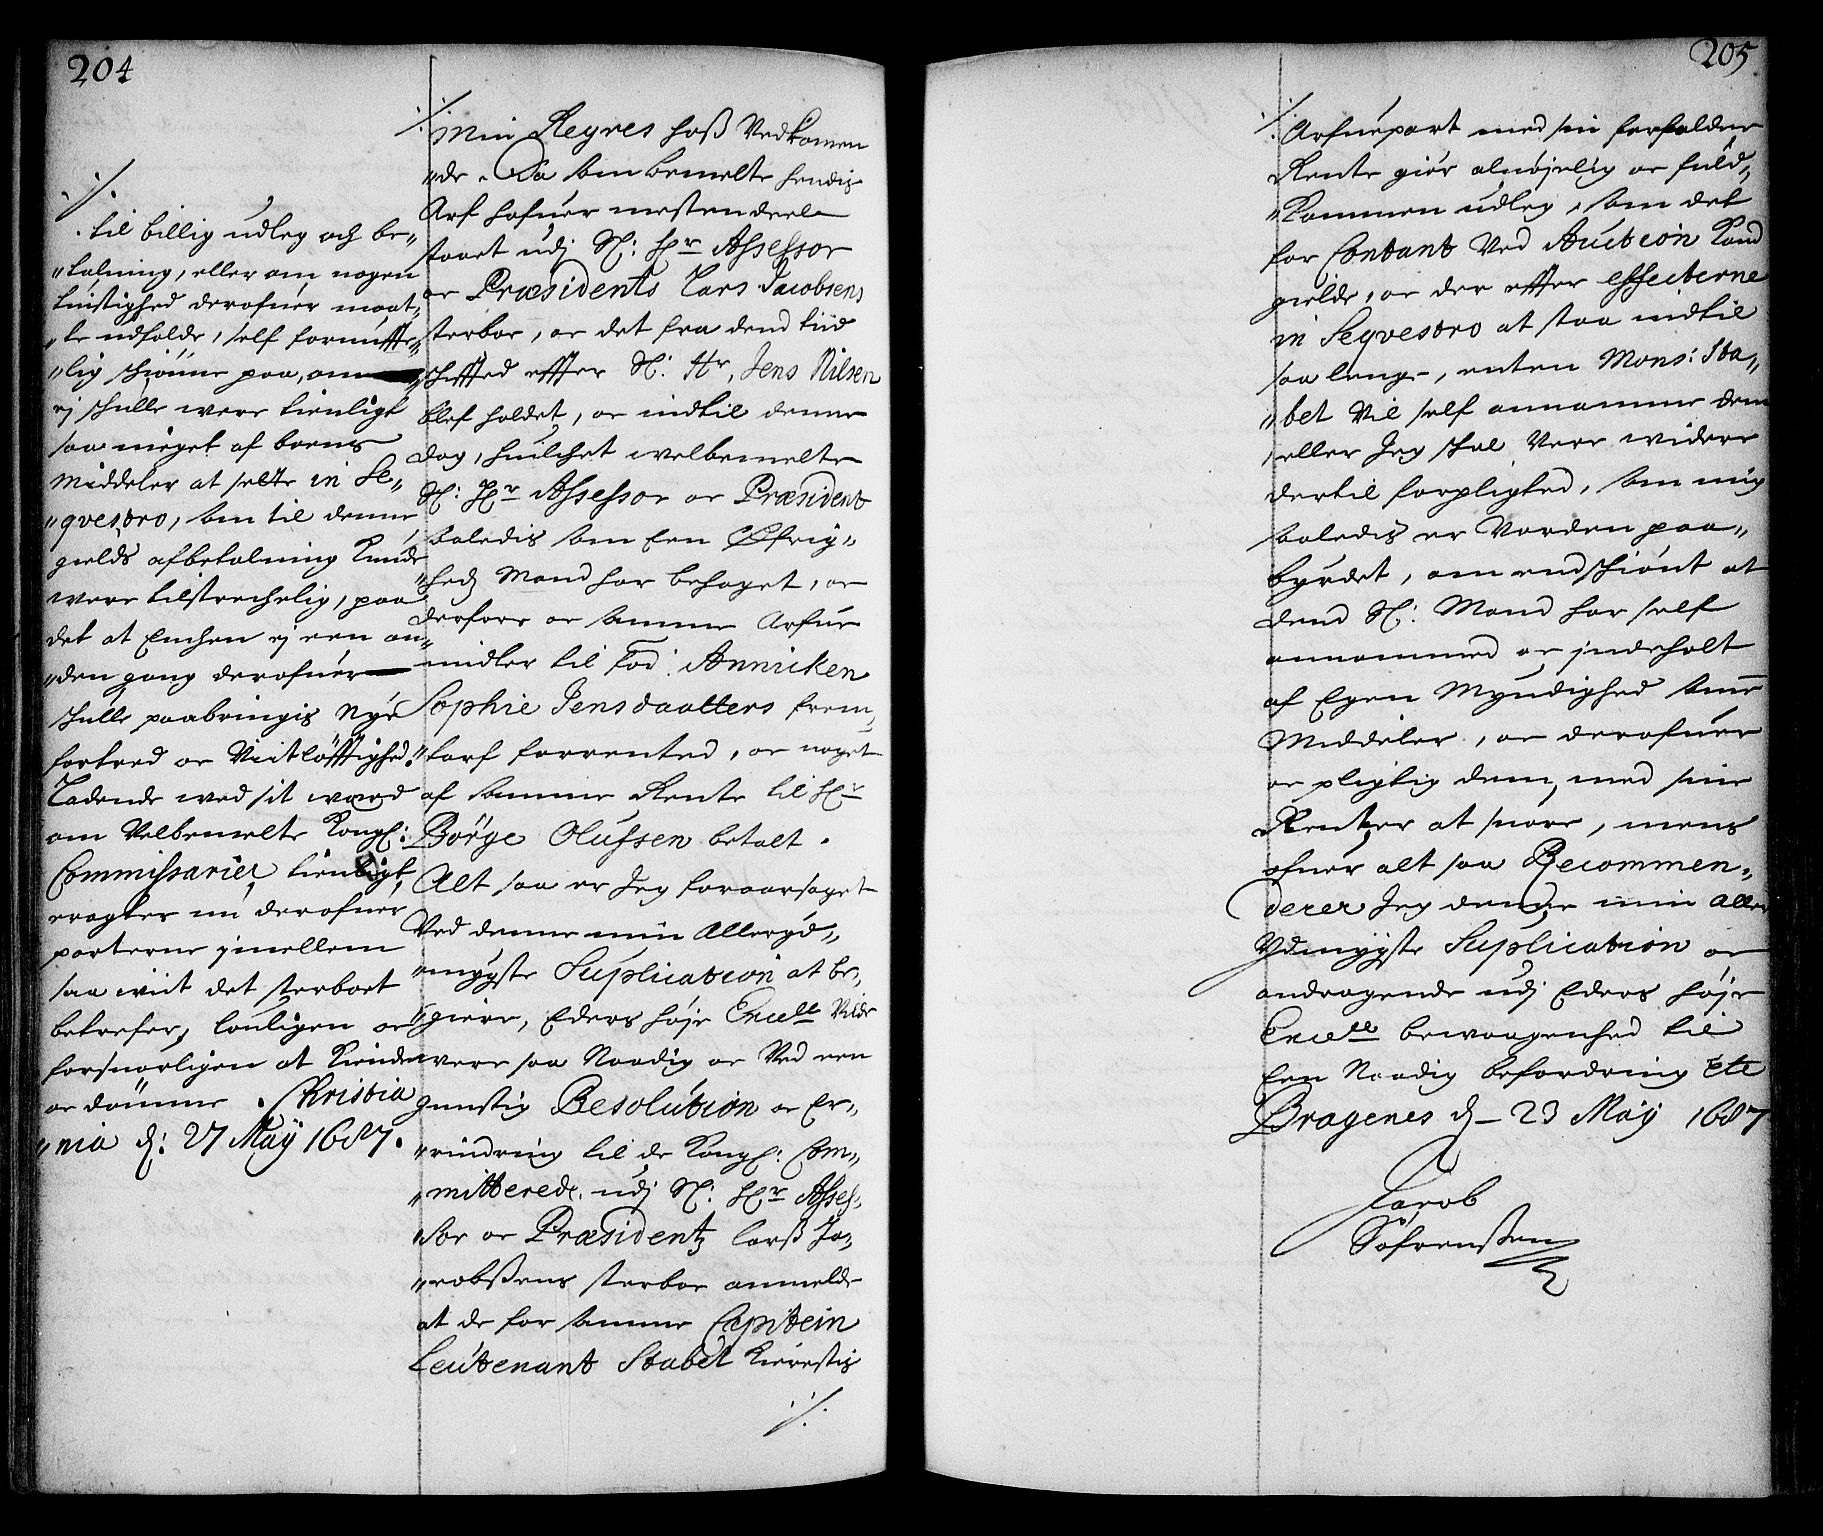 204
./.
til billig udleg och be„
„talning, eller om nogen
tuistighed derofuer maat„
„te udfalde, self fornufte„
„lig schiønne paa, om
ej schulle were tienligt
saa meget af boens
Middeler at sette in Se„
„qvestro, som til denne
gields afbetalning kunde
were tilstrechelig, paa
det at Enchen ej een an„
„den gang derofuer
schulle paabringis Nye
fortred oc Vitløfftighed.
Ladende wed sit werd
om Velbemelte Kongl:
Commissarier tienligt
eragter nu derofuer
parterne jmellem
saa wiit det sterboet
betrefer, louligen oc
forsuarligen at kiende
oc dømme. Christia
„nia d: 27 Maÿ 1687.
./.
Min Regres hoss Vedkomen
„de. Da som bemelte hendis
Arf hafuer mestendeel
staaet udj Sl: Hr Assessor
oc Præsidents Lars Jacobsens
sterboe, oc det fra dend tiid
schifted effter Sl: Hr. Jens Nilsen
blef holdet, oc indtil denne
dag, huilchet welbemelte
Sl: Hr Assessor oc Præsident
saaledis som Een Øfrig„
„heds Mand har behaget, oc
derfore oc samme Arfue
midler til bod: Annicken
Sophie Jensdaatters frem„
„tarf forrented, oc noget
af samme Rente til Hr
Børge Olufsen betalt.
Alt saa er Jeg foraarsaget
Ved denne min Alleryd„
„mygste Suplication at be„
„giere, Eders høje Excell Vilde
were saa Naadig oc Ved een
gunstig Resolution oc Er„
„rindring til de Kongl: Com„
„mitterede udj Sl: Hr Asses„
„sor oc Præsidentz larss Ja„
„cobsens sterboe anmelde
at de for samme Capitein
Leutenant Stabel kierestis
./.
205
./.
Arfuepart med sin forfaldne
Rente giør alnøjelig oc fuld„
„kommen udleg, som det
for Contant Ved Auction kand
gielde, oc der effter effecterne
in Seqvestro at staa indtil
saa lenge, enten Mons: Sta„
„bel Vil self annamme dem
eller Jeg skal Vere widere
dertil forpligted, som mig
saaledis er Vorden paa„
byrdet, om endschiønt at
dend Sl: Mand har self
annammed oc jndeholt
af Egen Myndighed samme
Middeler, oc derofuer
oc pligtig dem, med sine
Renter at suare, mens
ofuer alt saa Recommen„
derer Jeg denne min aller
Ydmygste Suplication oc
andragende udj Eders høje
Excell bewaagenhed til
Een Naadig befordring Etc
Bragenes d- 23 Maÿ 1687
Jacob
Søfrenssen